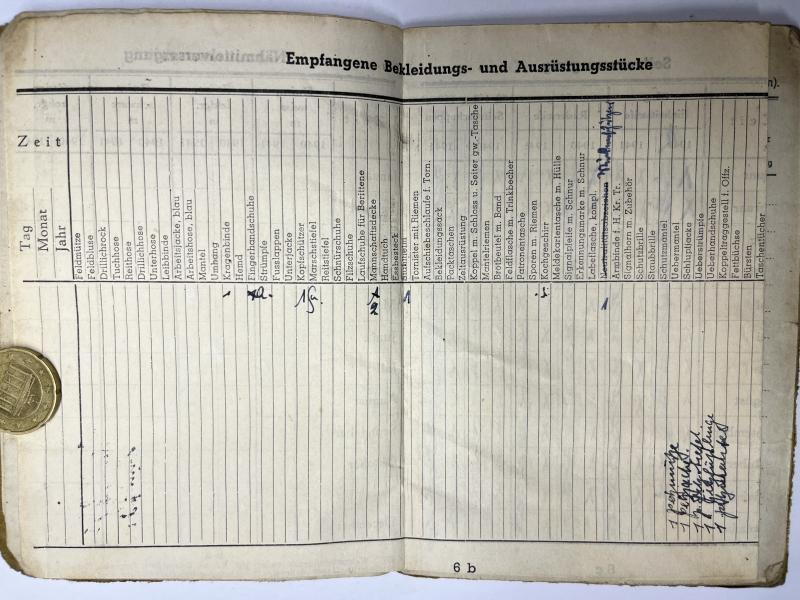 Empfangene Bekleidungs- und Ausrüstungsstücke
Zeit
Tag
Monat
Jahr
Feldmütze
Feldbluse
Drillichrock
Tuchhose
Reithose
Drillichhose
Unterhose
Leibbinde
Arbeitsjacke, blau
Arbeitshose, blau
Mantel
Umhang
Kragenbinde
Hemd
Fingerhandschuhe
Strümpfe
Fusslappen
Unterjacke
Kopfschützer
Marschstiefel
Reitstiefel
Schnürschuhe
Filzschuhe
Laufschuhe für Berittene
Mannschaftsdecke
Handtuch
Essbesteck
Stahlhelm
Tornister mit Riemen
Aufschiebeschlaufe f. Torn.
Bekleidungssack
Packtaschen
Zeltausrüstung
Koppel m. Schloss u. Seiter gw.-Tasche
Mantelriemen
Brotbeutel m. Band
Feldflasche m. Trinkbecher
Patronentasche
Sporen m. Riemen
Kochgeschirr
Meldekartentasche m. Hülle
Signalpfeife m. Schnur
Erkennungsmarke m. Schnur
Labetasche, kompl.
Armbinde f. H. Kr. Tr.
Signalhorn m. Zubehör
Schutzbrille
Staubbrille
Schutzmantel
Uebermantel
Schlupfjacke
Ueberstrümpfe
Ueberhandschuhe
Koppeltraggestell f. Offz.
Fettbüchse
Bürsten
Taschentücher
1
1
2
1
1
6 b